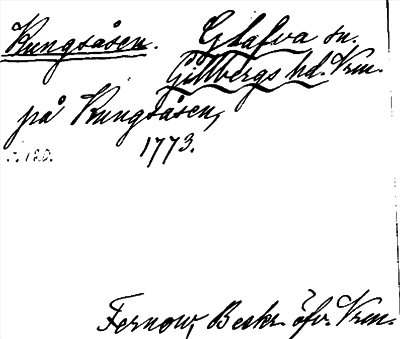 Kungsåsen. Glafva sn.
Gillbergs hd. Vrm.
på Kungsåsen,
1773.
Fernow, Beskr. öfv. Vrm.